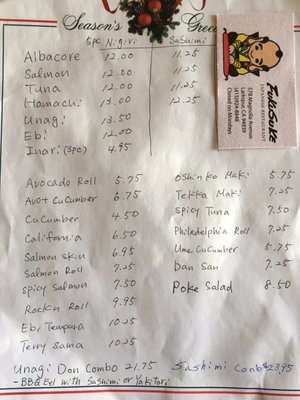 Season's Gree
5pc Nigiri Sashimi
Albacore 12.00 11.25
Salmon 12.00 11.25
Tuna 12.00 11.25
Hamachi 13.00 12.25
Unagi 13.50
Ebi 12.00
Inari (3pc) 4.95
FukuSuke
JAPANESE RESTAURANT
578 Magnolia Avenue
Larkspur, CA 94939
Closed on Mondays
Avocado Roll 5.75
Avo+ Cucumber 6.75
Cucumber 4.50
California 6.50
Salmon Skin 6.95
Salmon Roll 7.25
Spicy Salmon 7.50
Rock n Roll 9.95
Ebi Tempura 10.25
Terry Sama 10.25
Oshinko Maki 5.75
Tekka Maki 7.25
Spicy Tuna 7.50
Philadelphia Roll 7.25
Ume Cucumber 5.75
Dan San 7.25
Poke Salad 8.50
Unagi Don Combo 21.75 Sashimi Comb $23.95
- BBQ Eel with Sashimi or Yakitori